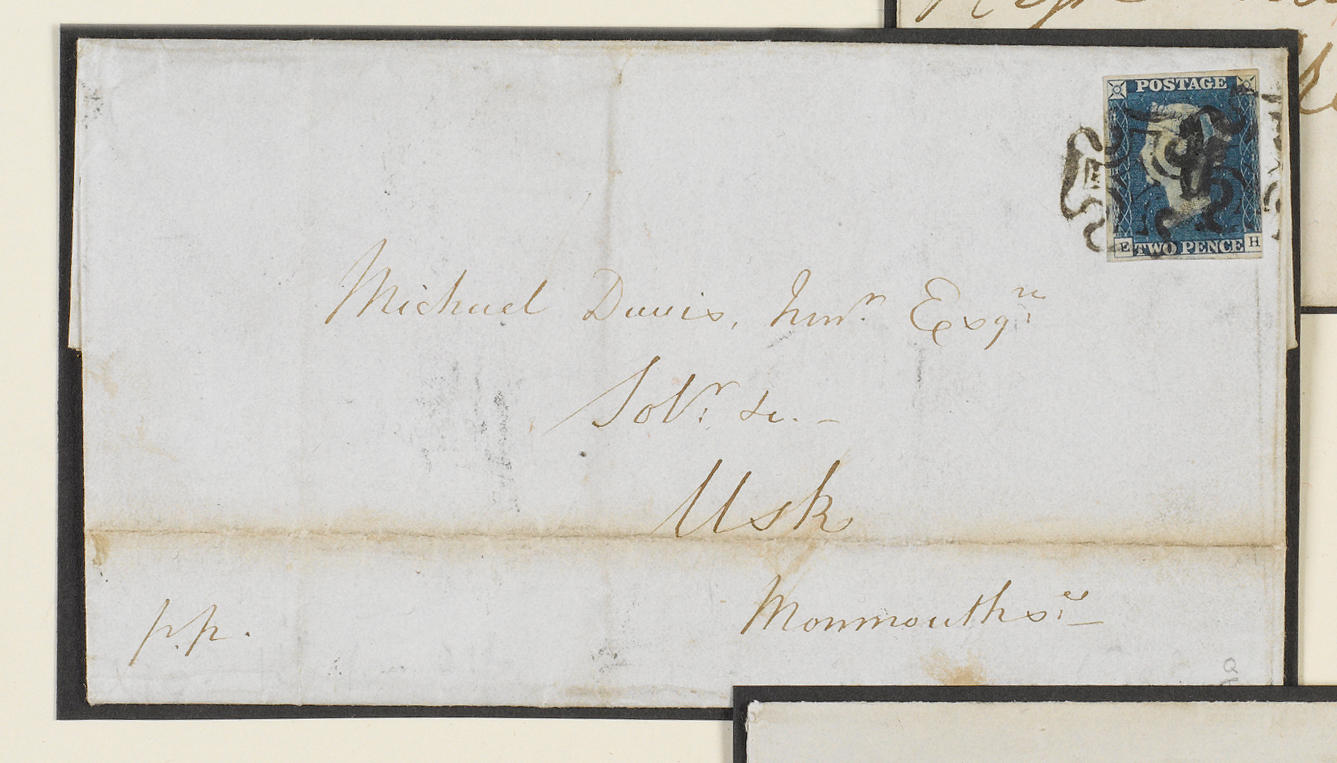 POSTAGE
E TWO PENCE H
Michael Davis, Junr. Esqre
Solr. &c. -
Usk
Monmouthse
p.p.